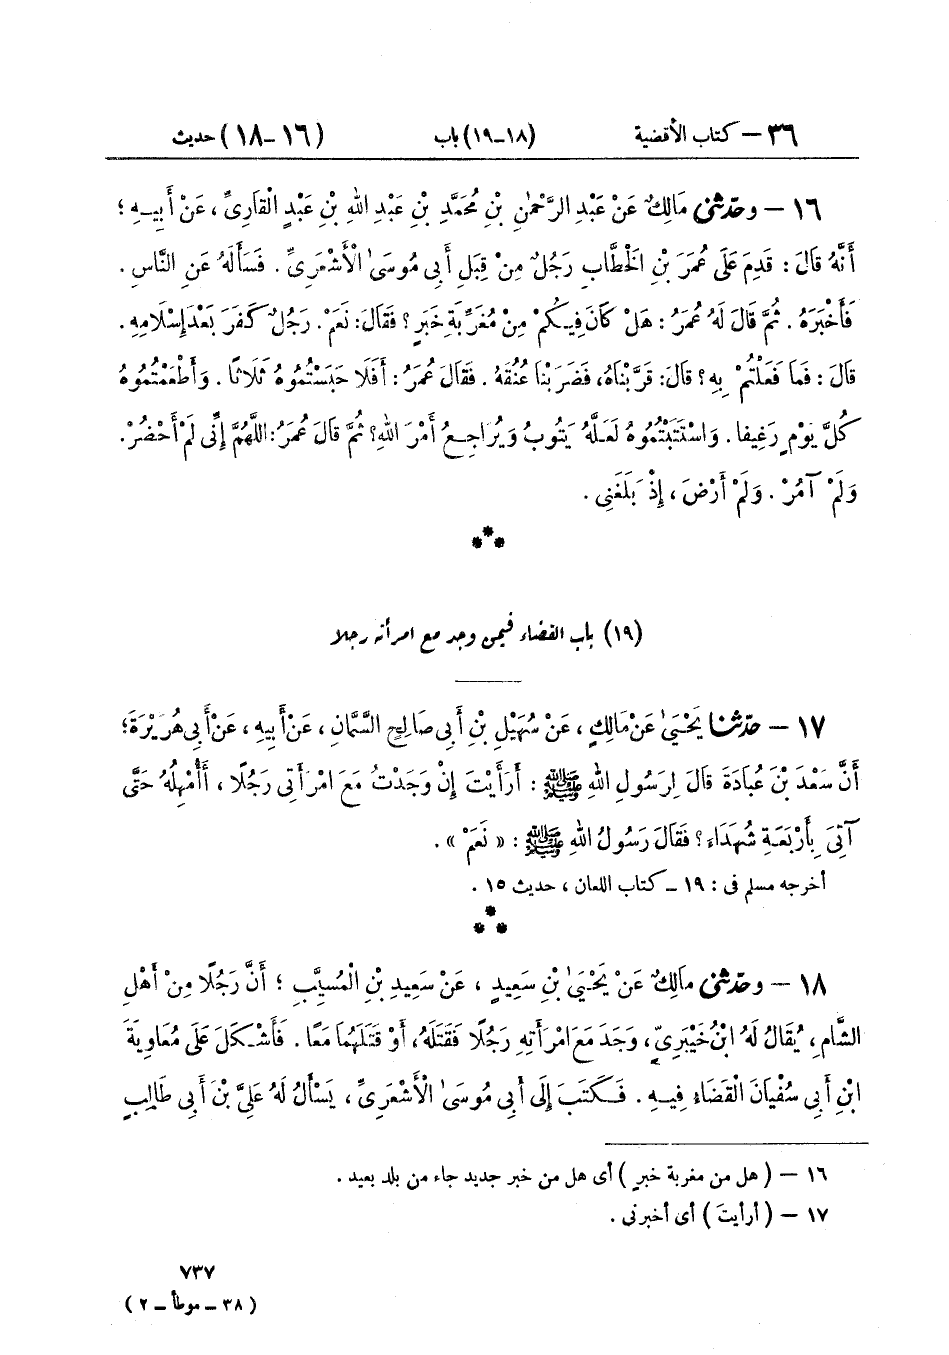 ٣٦ – كتاب الأقضية (١٨–١٩) باب (١٦–١٨) حديث
١٦ – وحدّثنى مَالِكٌ عَنْ عَبْدِ الرَّحْمٰنِ بْنِ مُحَمَّدِ بْنِ عَبْدِ اللهِ بْنِ عَبْدٍ الْقَارِىِّ ، عَنْ أَبِيهِ ؛
أَنَّهُ قَالَ : قَدِمَ عَلَى عُمَرَ بْنِ الْخَطَّابِ رَجُلٌ مِنْ قِبَلِ أَبِى مُوسَى الْأَشْعَرِىِّ . فَسَأَلَهُ عَنِ النَّاسِ .
فَأَخْبَرَهُ . ثُمَّ قَالَ لَهُ عُمَرُ : هَلْ كَانَ فِيكُمْ مِنْ مُغَرِّبَةِ خَبَرٍ ؟ فَقَالَ : نَعَمْ . رَجُلٌ كَفَرَ بَعْدَ إِسْلَامِهِ .
قَالَ : فَمَا فَعَلْتُمْ بِهِ ؟ قَالَ : قَرَّبْنَاهُ ، فَضَرَبْنَا عُنُقَهُ . فَقَالَ عُمَرُ : أَفَلَا حَبَسْتُمُوهُ ثَلَاثًا . وَأَطْعَمْتُمُوهُ
كُلَّ يَوْمٍ رَغِيفًا . وَاسْتَتَبْتُمُوهُ لَعَلَّهُ يَتُوبُ وَيُرَاجِعُ أَمْرَ اللهِ ؟ ثُمَّ قَالَ عُمَرُ : اللَّهُمَّ إِنِّى لَمْ أَحْضُرْ .
وَلَمْ آمُرْ . وَلَمْ أَرْضَ ، إِذْ بَلَغَنِى .
***
(١٩) باب القضاء فيمن وجد مع امرأته رجلا
١٧ – حدّثنا يَحْيَىٰ عَنْ مَالِكٍ ، عَنْ سُهَيْلِ بْنِ أَبِى صَالِحٍ السَّمَّانِ ، عَنْ أَبِيهِ ، عَنْ أَبِى هُرَيْرَةَ ؛
أَنَّ سَعْدَ بْنَ عُبَادَةَ قَالَ لِرَسُولِ اللهِ ﷺ : أَرَأَيْتَ إِنْ وَجَدْتُ مَعَ امْرَأَتِى رَجُلًا ، أَأُمْهِلُهُ حَتَّى
آتِىَ بِأَرْبَعَةِ شُهَدَاءَ ؟ فَقَالَ رَسُولُ اللهِ ﷺ : « نَعَمْ » .
أخرجه مسلم فى : ١٩ – كتاب اللعان ، حديث ١٥ .
***
١٨ – وحدّثنى مَالِكٌ عَنْ يَحْيَىٰ بْنِ سَعِيدٍ ، عَنْ سَعِيدِ بْنِ الْمُسَيَّبِ ؛ أَنَّ رَجُلًا مِنْ أَهْلِ
الشَّامِ ، يُقَالُ لَهُ ابْنُ خَيْبَرِىٍّ ، وَجَدَ مَعَ امْرَأَتِهِ رَجُلًا فَقَتَلَهُ ، أَوْ قَتَلَهُمَا مَعًا . فَأَشْكَلَ عَلَى مُعَاوِيَةَ
ابْنِ أَبِى سُفْيَانَ الْقَضَاءُ فِيهِ . فَكَتَبَ إِلَى أَبِى مُوسَى الْأَشْعَرِىِّ ، يَسْأَلُ لَهُ عَلِىَّ بْنَ أَبِى طَالِبٍ
١٦ – ( هل من مغربة خبرٍ ) أى هل من خبر جديد جاء من بلد بعيد .
١٧ – ( أرأيتَ ) أى أخبرنى .
٧٣٧
( ٣٨ – موطأ – ٢ )